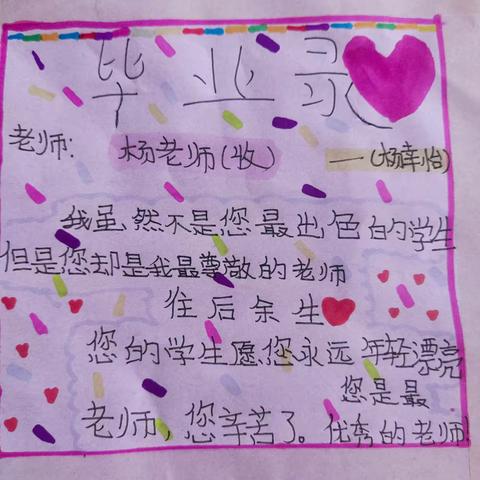 毕业录
老师: 杨老师(收) —(杨幸怡)
我虽然不是您最出色的学生
但是您却是我最尊敬的老师
往后余生
您的学生愿您永远年轻漂亮
您是最
老师,您辛苦了。优秀的老师!